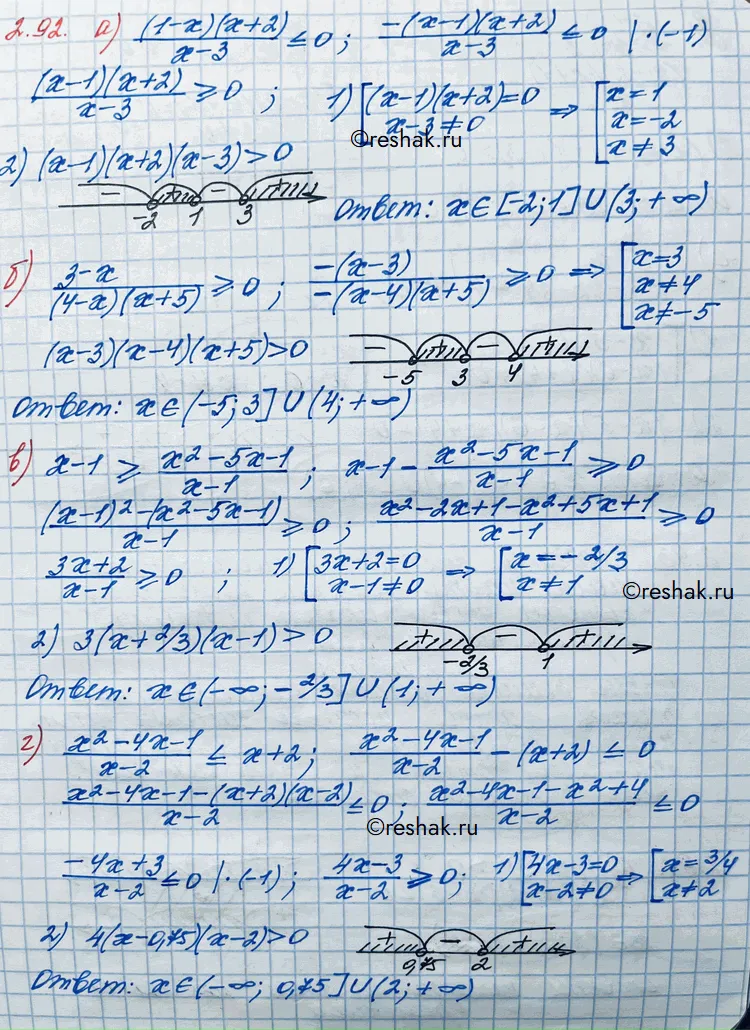 2.92. а) (1-x)(x+2)/(x-3) ≤ 0 ; -(x-1)(x+2)/(x-3) ≤ 0 | ·(-1)
(x-1)(x+2)/(x-3) ≥ 0 ; 1) [(x-1)(x+2)=0 x-3≠0 ⇒ [x=1 x=-2 x≠3
©reshak.ru
2) (x-1)(x+2)(x-3)>0
- + - +
-2 1 3
Ответ: x∈[-2;1]∪(3;+∞)
б) (3-x)/((4-x)(x+5)) ≥ 0 ; -(x-3)/(-(x-4)(x+5)) ≥ 0 ⇒ [x=3 x≠4 x≠-5
(x-3)(x-4)(x+5)>0
- + - +
-5 3 4
Ответ: x∈(-5;3]∪(4;+∞)
в) x-1 ≥ (x²-5x-1)/(x-1) ; x-1 - (x²-5x-1)/(x-1) ≥ 0
((x-1)²-(x²-5x-1))/(x-1) ≥ 0 ; (x²-2x+1-x²+5x+1)/(x-1) ≥ 0
(3x+2)/(x-1) ≥ 0 ; 1) [3x+2=0 x-1≠0 ⇒ [x=-2/3 x≠1
©reshak.ru
2) 3(x+2/3)(x-1)>0
+ - +
-2/3 1
Ответ: x∈(-∞;-2/3]∪(1;+∞)
г) (x²-4x-1)/(x-2) ≤ x+2 ; (x²-4x-1)/(x-2) - (x+2) ≤ 0
(x²-4x-1-(x+2)(x-2))/(x-2) ≤ 0 ; (x²-4x-1-x²+4)/(x-2) ≤ 0
©reshak.ru
(-4x+3)/(x-2) ≤ 0 | ·(-1) ; (4x-3)/(x-2) ≥ 0 ; 1) [4x-3=0 x-2≠0 ⇒ [x=3/4 x≠2
2) 4(x-0,75)(x-2)>0
+ - +
0,75 2
Ответ: x∈(-∞; 0,75]∪(2;+∞)